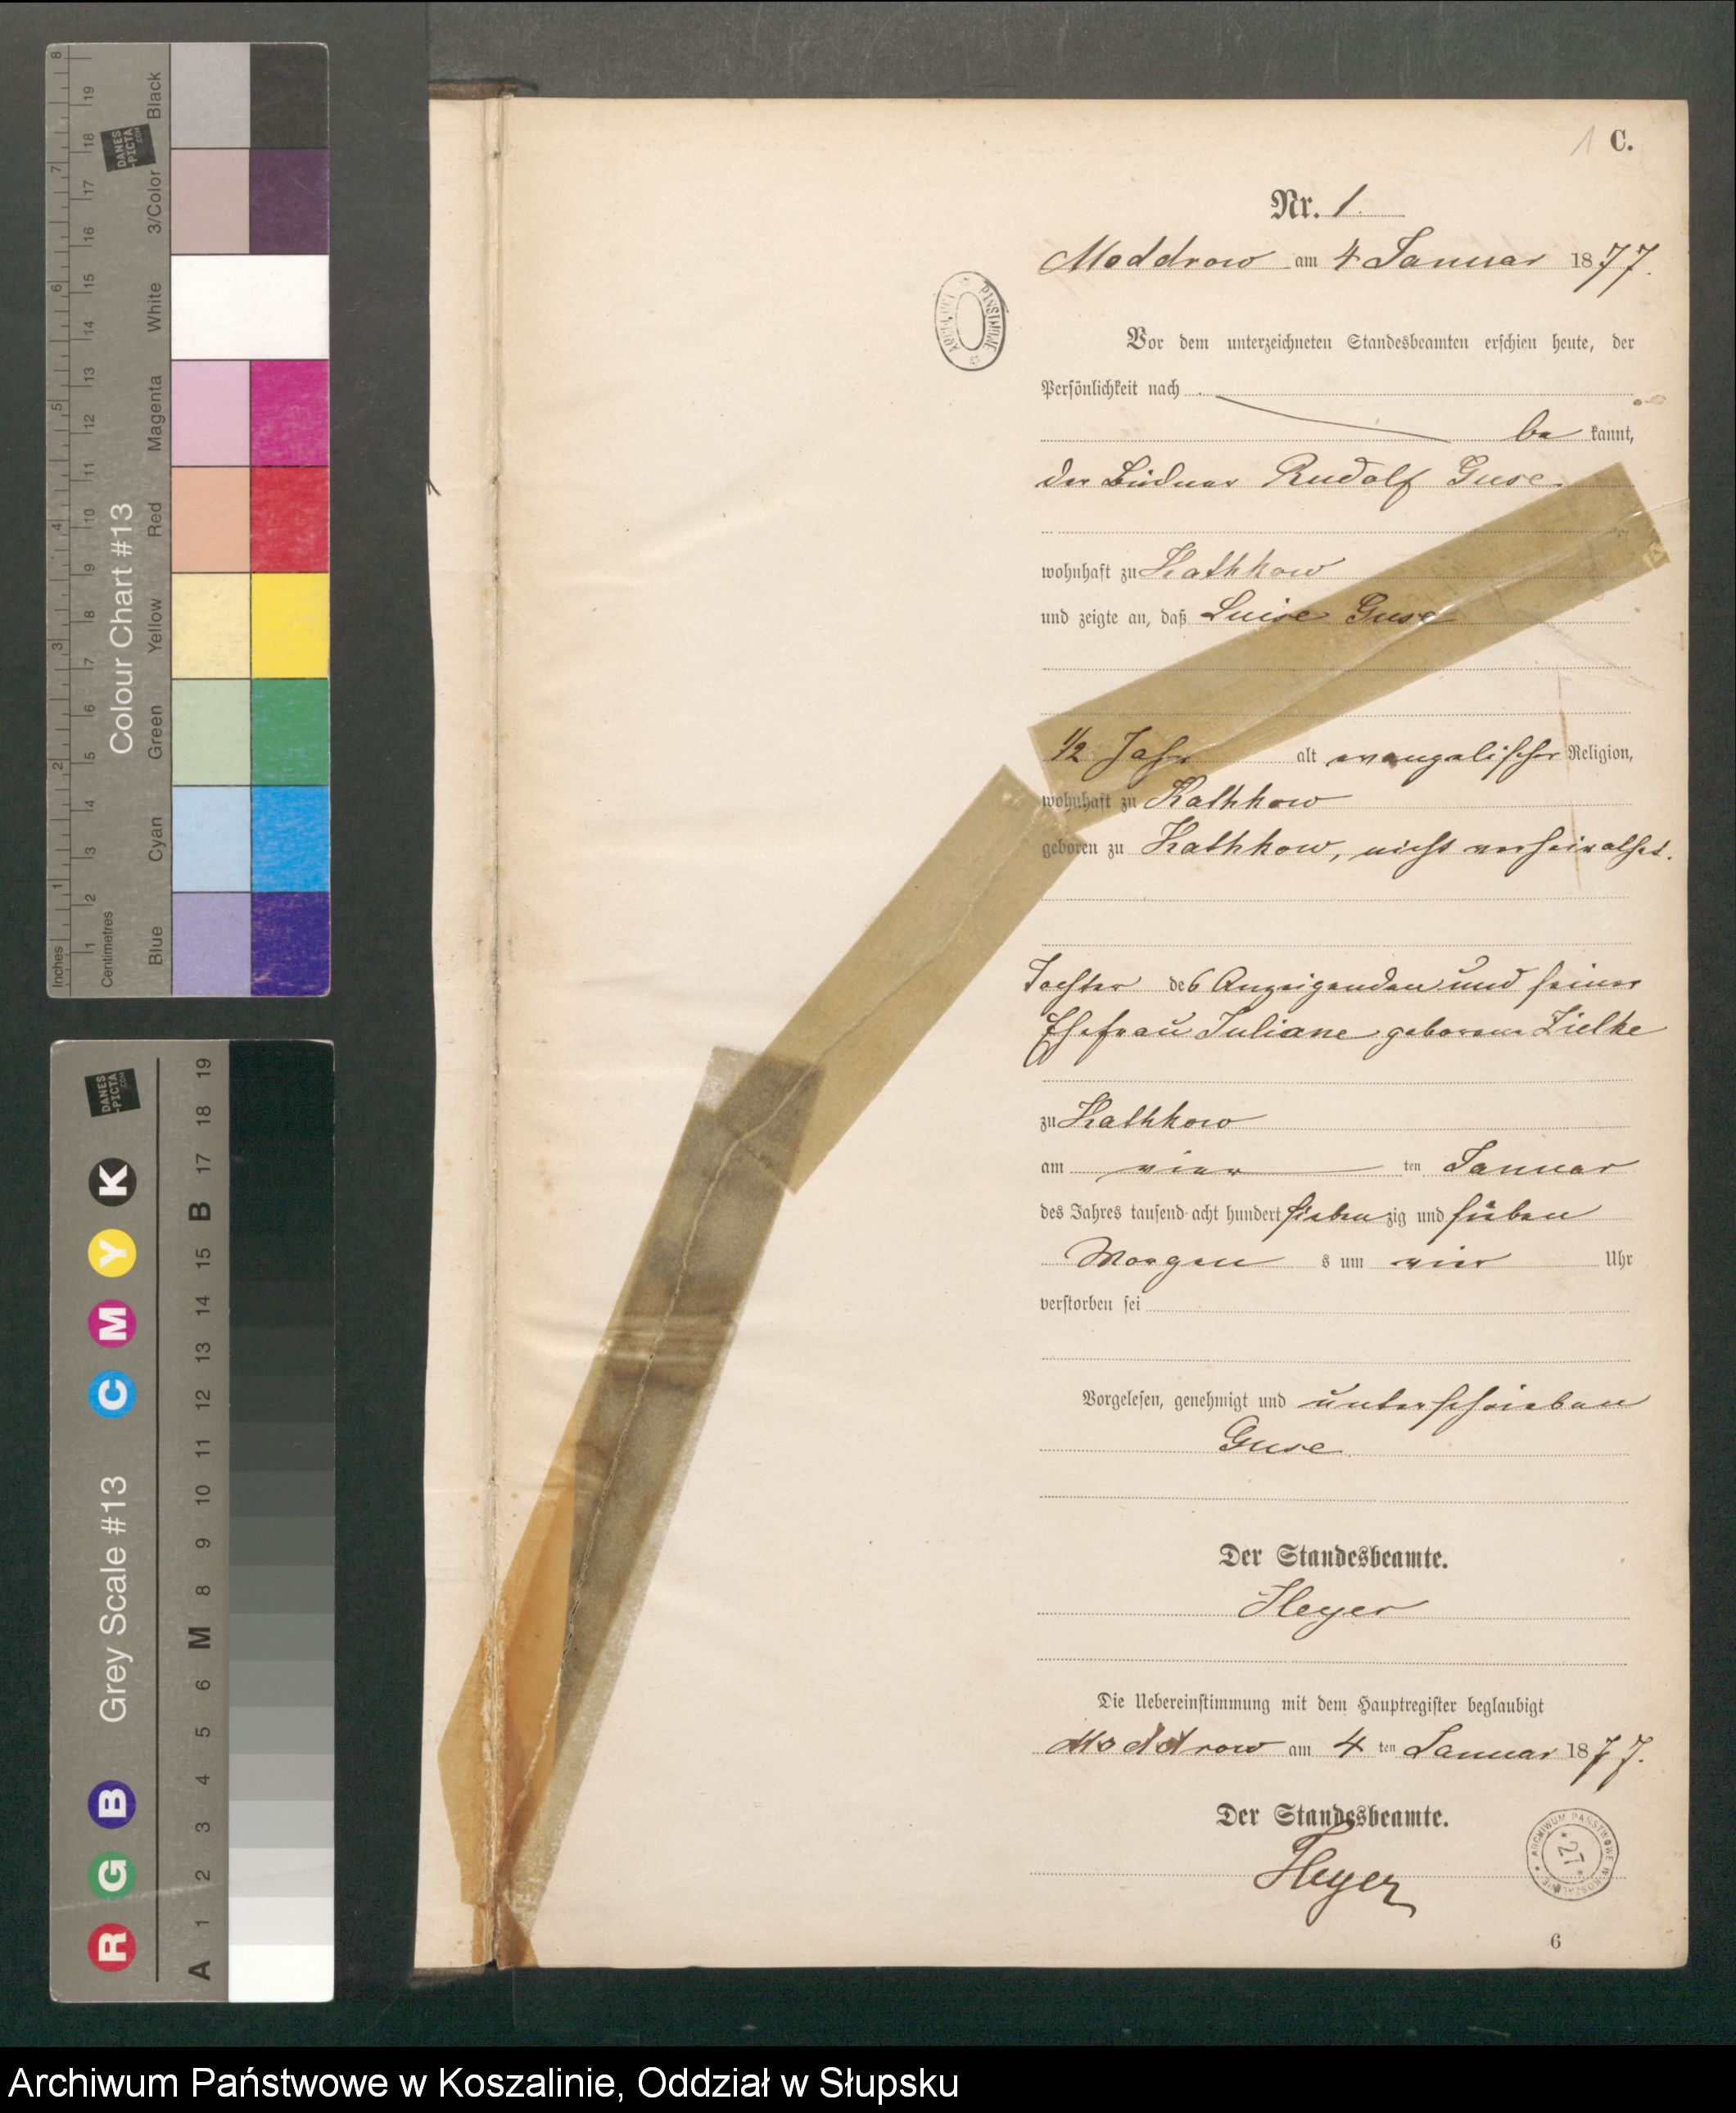 C.
Nr. 1.
Moddrow am 4 Januar 1877.
Vor dem unterzeichneten Standesbeamten erschien heute, der
Persönlichkeit nach
be kannt,
der Büdner Rudolf Guse
wohnhaft zu Kathkow
und zeigte an, daß Luise Guse
1/2 Jahr alt evangelischer Religion,
wohnhaft zu Kathkow
geboren zu Kathkow, nicht verheirathet.
Tochter des Anzeigenden und seiner
Ehefrau Juliane geborene Zielke
zu Kathkow
am vier ten Januar
des Jahres tausend acht hundert sieben zig und sieben
Morgen s um vier Uhr
verstorben sei
Vorgelesen, genehmigt und unterschrieben
Guse
Der Standesbeamte.
Heyer
Die Uebereinstimmung mit dem Hauptregister beglaubigt
Moddrow am 4 ten Januar 1877.
Der Standesbeamte.
Heyer
ARCHIWUM PAŃSTWOWE W KOSZALINIE
27
6
Colour Chart #13
Inches
Centimetres
Blue
Cyan
Green
Yellow
Red
Magenta
White
3/Color
Black
DANES
-PICTA
.COM
Grey Scale #13
R G B C M Y K
A 1 2 3 4 5 6 M 8 9 10 11 12 13 14 15 B 17 18 19
DANES
-PICTA
.COM
Archiwum Państwowe w Koszalinie, Oddział w Słupsku